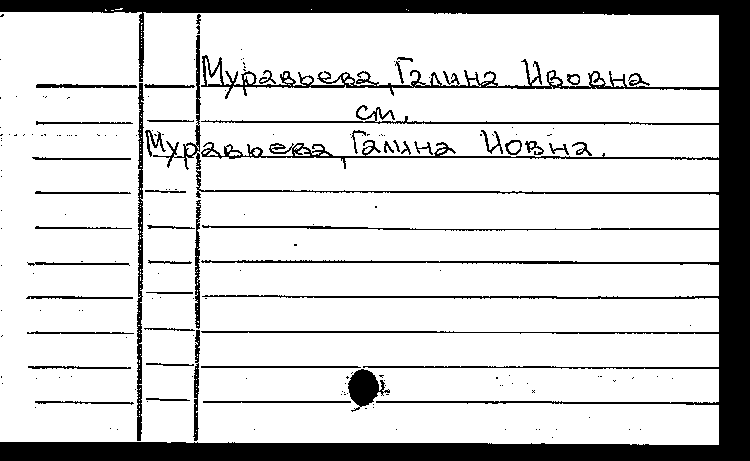 Муравьева, Галина Ивовна
см.
Муравьева, Галина Иовна.